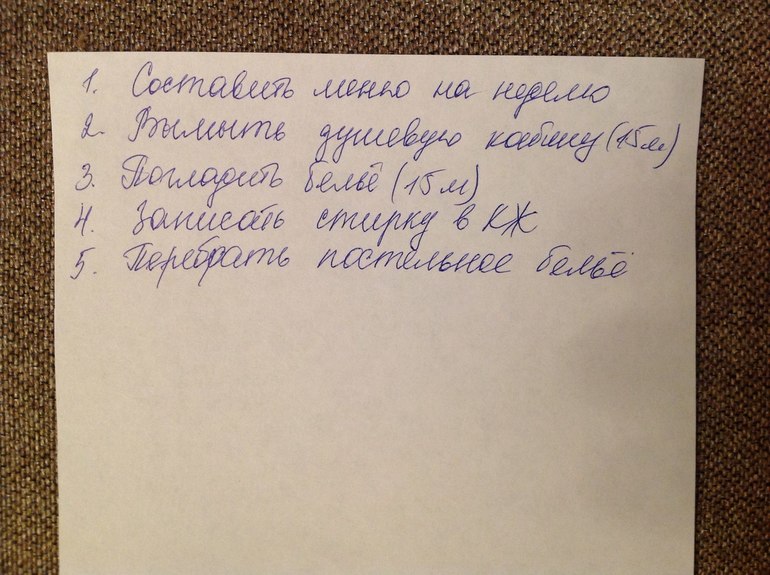 1. Составить меню на неделю
2. Вымыть душевую кабину (15м)
3. Погладить бельё (15м)
4. Записать стирку в КЖ
5. Перебрать постельное бельё